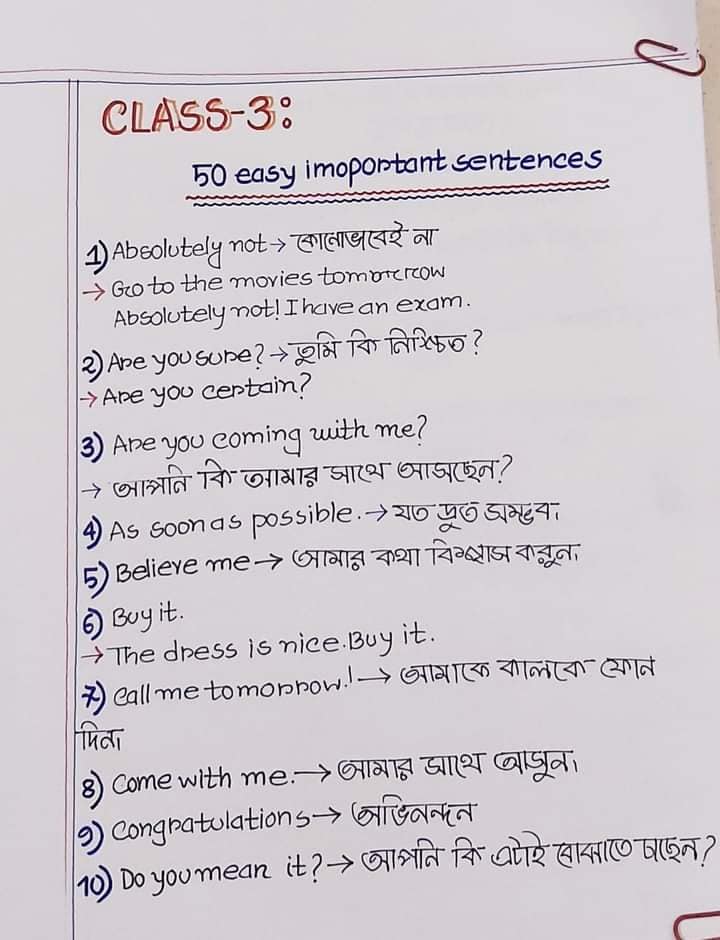 CLASS-3:
50 easy imoportant sentences
1) Absolutely not → কোনোভাবেই না
→ Go to the movies tomorrow
Absolutely not! I have an exam.
2) Are you sure? → তুমি কি নিশ্চিত?
→ Are you certain?
3) Are you coming with me?
→ আপনি কি আমার সাথে আসছেন?
4) As soon as possible. → যত দ্রুত সম্ভব।
5) Believe me → আমার কথা বিশ্বাস করুন।
6) Buy it.
→ The dress is nice. Buy it.
7) Call me tomorrow.! → আমাকে কালকে ফোন
দিন।
8) Come with me. → আমার সাথে আসুন।
9) Congratulations → অভিনন্দন
10) Do you mean it? → আপনি কি এটাই বোঝাতে চাছেন?